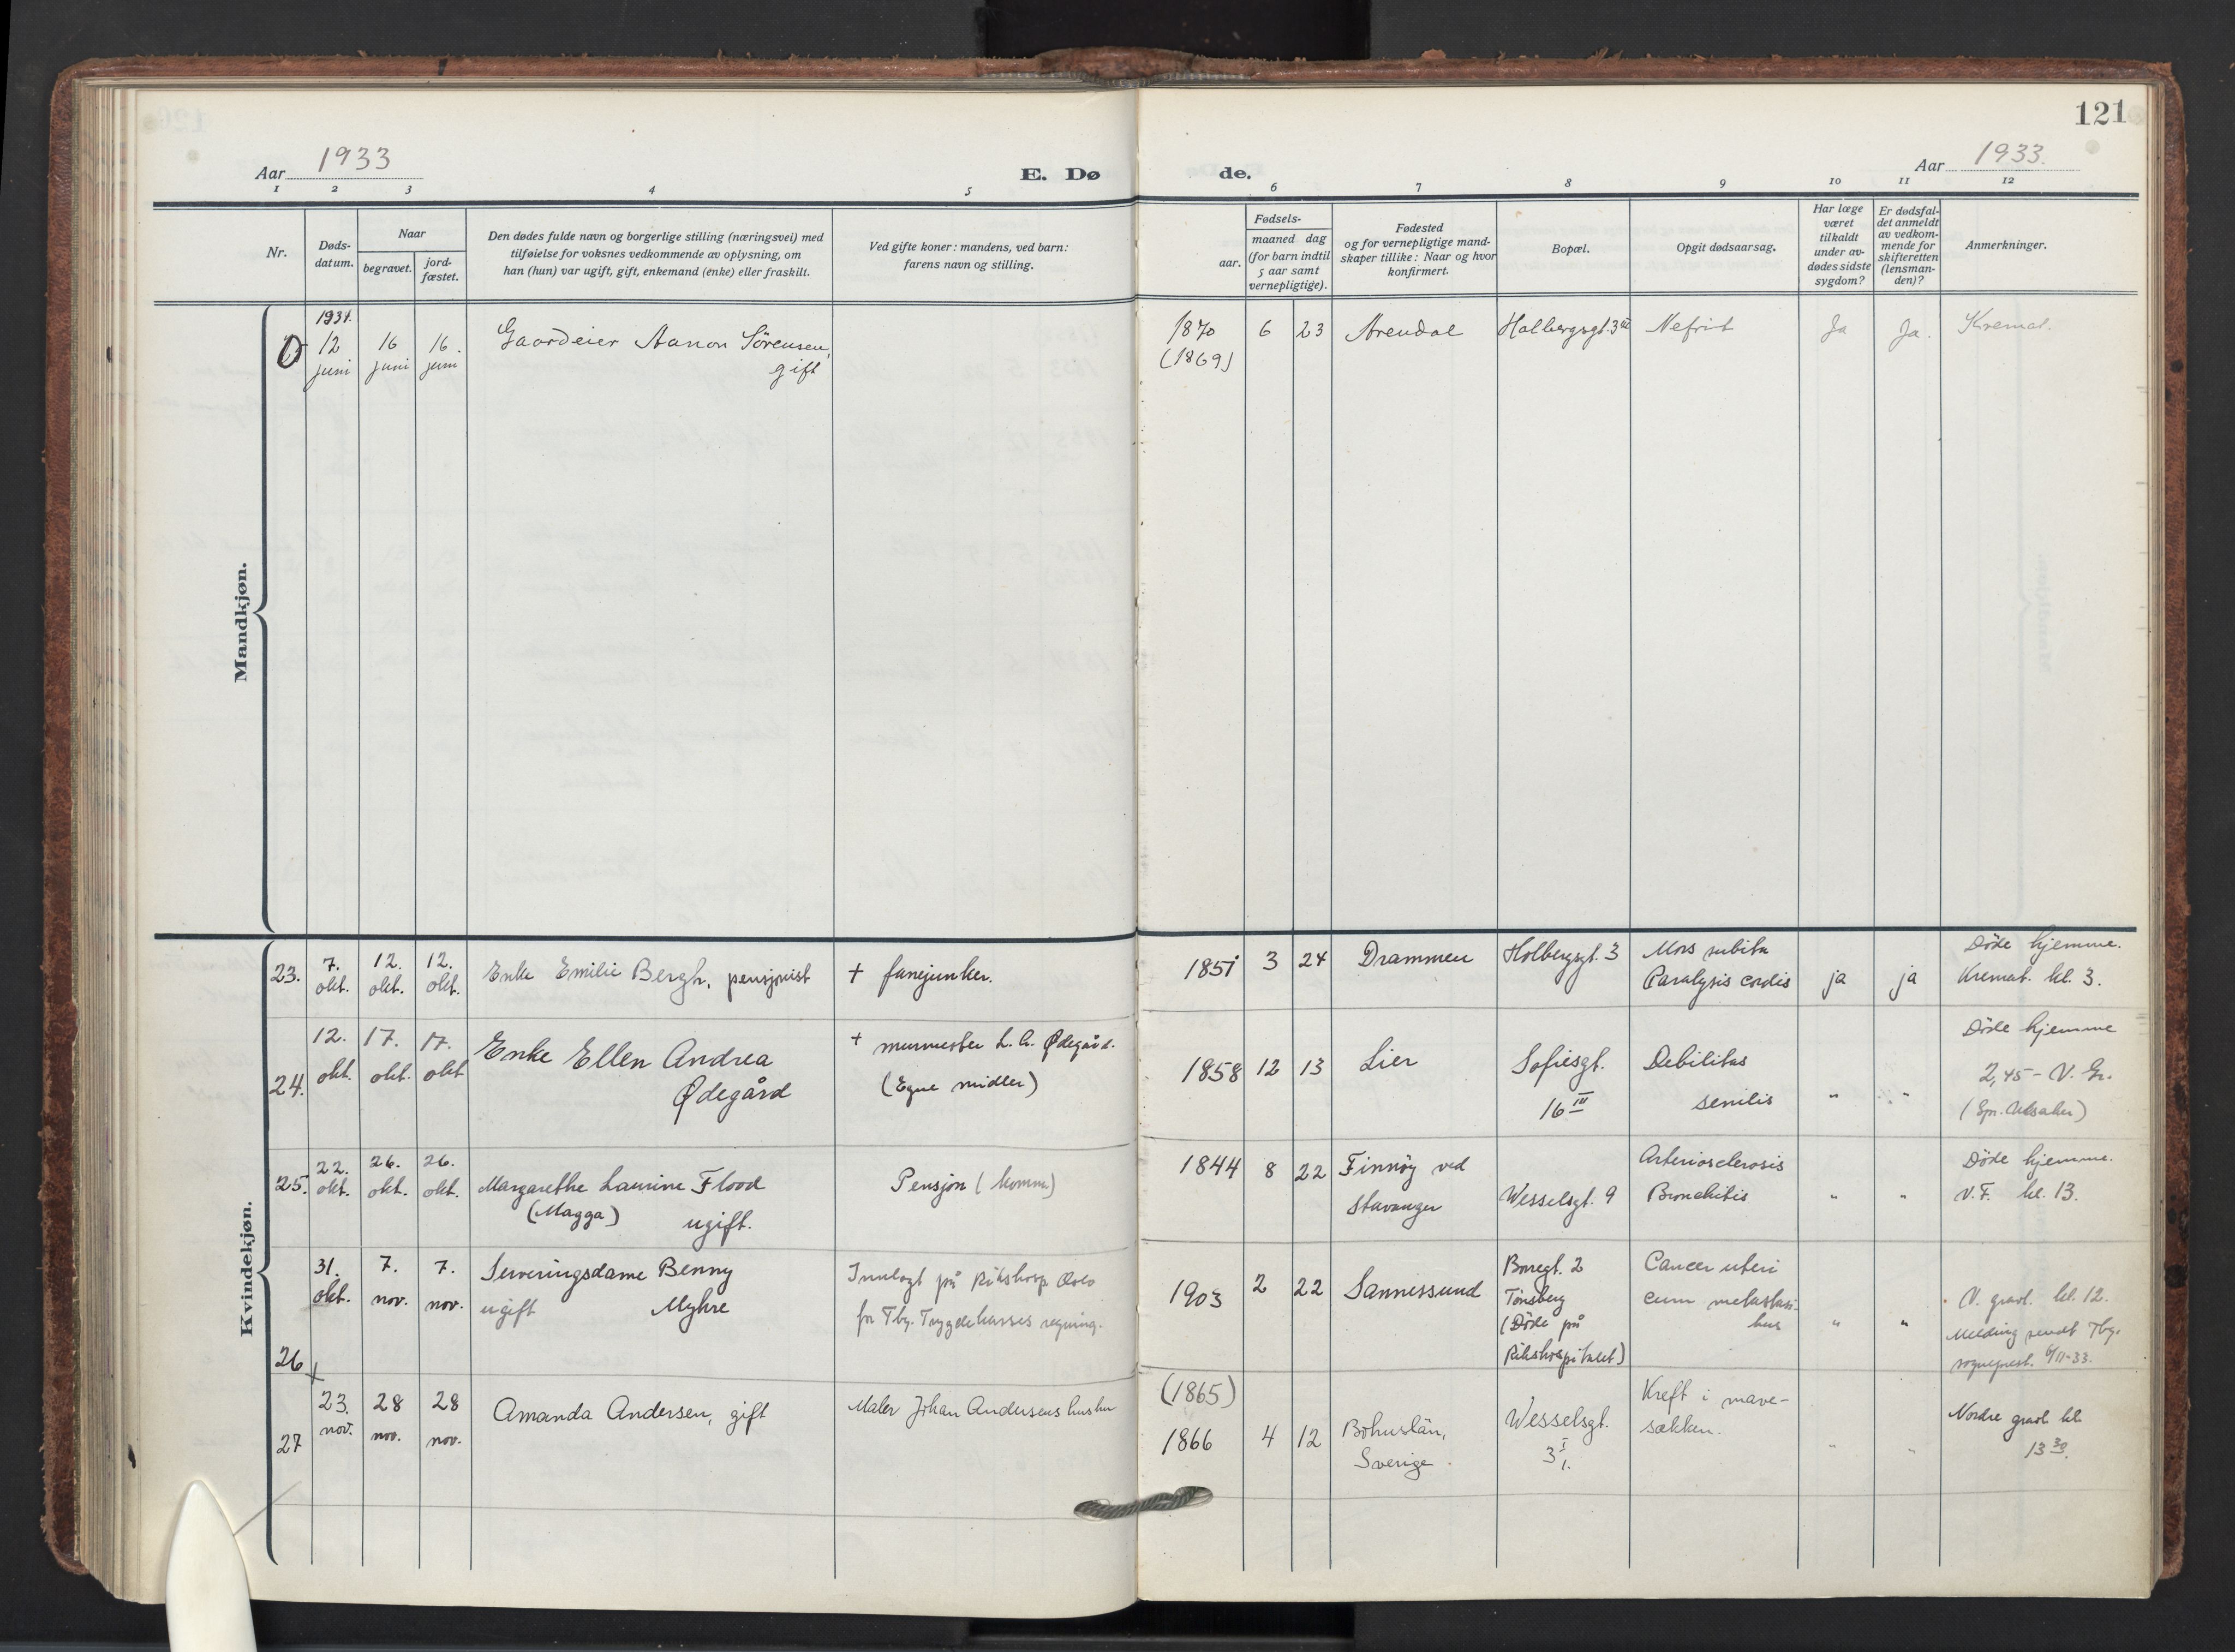 121
Aar 1933
E. Dø
de.
Aar 1933.
1 2 3 4 5 6 7 8 9 10 11 12
Nr.
Døds-
datum.
Naar
begravet.
jord-
fæstet.
Den dødes fulde navn og borgerlige stilling (næringsvei) med
tilføielse for voksnes vedkommende av oplysning, om
han (hun) var ugift, gift, enkemand (enke) eller fraskilt.
Ved gifte koner: mandens, ved barn:
farens navn og stilling.
Fødsels-
aar.
maaned dag
(for barn indtil
5 aar samt
vernepligtige).
Fødested
og for vernepligtige mand-
skaper tillike: Naar og hvor
konfirmert.
Bopæl.
Opgit dødsaarsag.
Har læge
været
tilkaldt
under av-
dødes sidste
sygdom?
Er dødsfal-
det anmeldt
av vedkom-
mende for
skifteretten
(lensman-
den)?
Anmerkninger.
Mandkjøn.
1931.
12 juni
16 juni
16. juni
Gaardeier Aanon Sörensen,
gift
1870
(1869)
6 23
Arendal
Holbergsgt. 3 III
Nefrit
Ja
Ja.
Kremat.
Kvindekjøn.
23.
7. okt.
12. okt.
12. okt.
Enke Emilie Bergh, pensjonist
+ fanejunker.
1851 3 24
Drammen
Holbergsgt. 3
Mors subita
Paralysis cordis
ja
ja
Døde hjemme.
Kremat. kl. 3.
24.
12. okt.
17. okt.
17. okt
Enke Ellen Andrea
Ødegård
+ murmester L. A. Ødegård.
(Egne midler)
1858 12 13
Lier
Sofiesgt.
16 III
Debilitas
senilis
"
"
Døde hjemme
2,45 - V. Gr.
25.
22. okt.
26. okt.
26. okt.
Margarethe Laurine Flood
(Magga)
ugift.
Pensjon (komm.)
1844 8 22
Finnöy ved
Stavanger
Wesselsgt. 9
Arteriosclerosis
Bronchitis
"
"
Døde hjemme.
V.F. kl. 13.
26
31. okt.
7. nov.
7. nov.
Serveringsdame Benny
ugift Myhre
Innlagt på Rikshosp. Oslo
for Tbg. Trygdekasses regning.
1903 2 22
Sannessund
Tønsberg
(Døde på
Rikshospitalet)
Cancer uteri
cum metastasi-
bus
"
"
V. gravl. kl. 12.
Melding sendt Tbg.
sogneprest. 6/11-33.
27
23. nov.
28 nov.
28 nov.
Amanda Andersen, gift
Maler Johan Andersens hustru
(1865)
1866 4 12
Bohuslän,
Sverige.
Wesselsgt.
3 I
Kreft i mave-
sækken.
"
"
Nordre gravl. kl.
13 30.